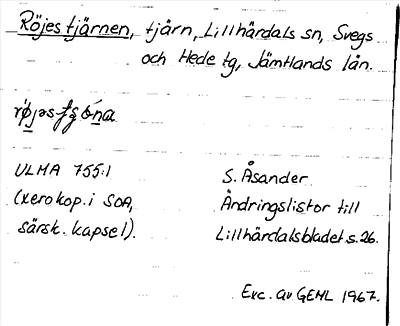 Röjestjärnen, tjärn, Lillhärdals sn, Svegs
och Hede tg, Jämtlands län.
ULMA 755:1
(xerokop. i SOA,
särsk. kapsel).
S. Åsander
Ändringslistor till
Lillhärdalsbladet s. 26.
Exc. av GEHL 1967.